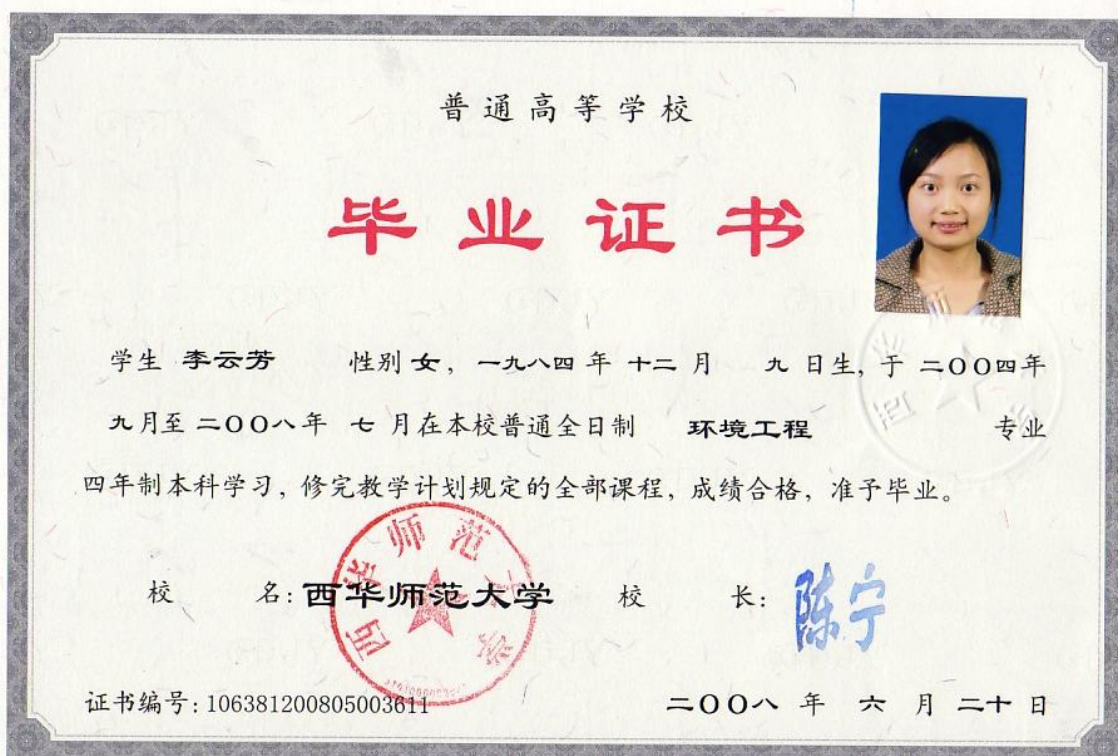 普通高等学校
毕业证书
学生 李云芳 性别 女, 一九八四 年 十二 月 九 日生, 于 二OO四年
九月至 二OO八年 七 月在本校普通全日制 环境工程 专业
四年制本科学习, 修完教学计划规定的全部课程, 成绩合格, 准予毕业。
校 名: 西华师范大学 校 长: 陈宁
西华师范大学
证书编号: 106381200805003611 二OO八 年 六 月 二十 日